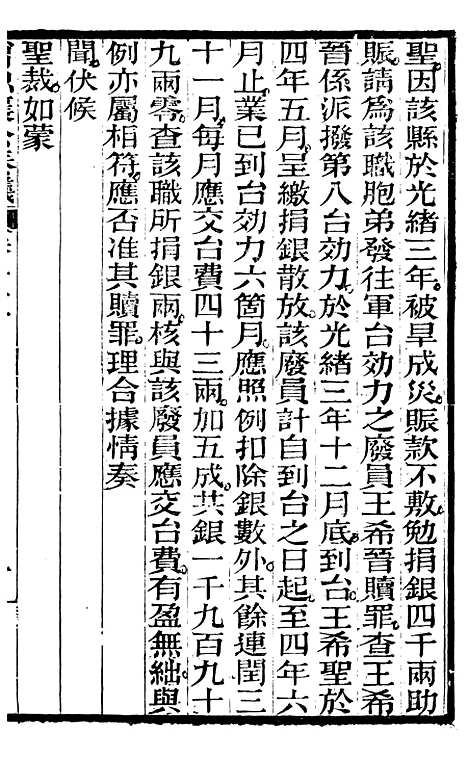 聖因該縣於光緒三年被旱成災賑款不敷勉捐銀四千兩助
賑請爲該職胞弟發往軍台効力之廢員王希晉贖罪查王希
晉係派撥第八台効力於光緒三年十二月底到台王希聖於
四年五月呈繳捐銀散放該廢員計自到台之日起至四年六
月止業已到台効力六箇月應照例扣除銀數外其餘連閏三
十一月每月應交台費四十三兩加五成共銀一千九百九十
九兩零查該職所捐銀兩核與該廢員應交台費有盈無絀與
例亦屬相符應否准其贖罪理合據情奏
聞伏候
聖裁如蒙